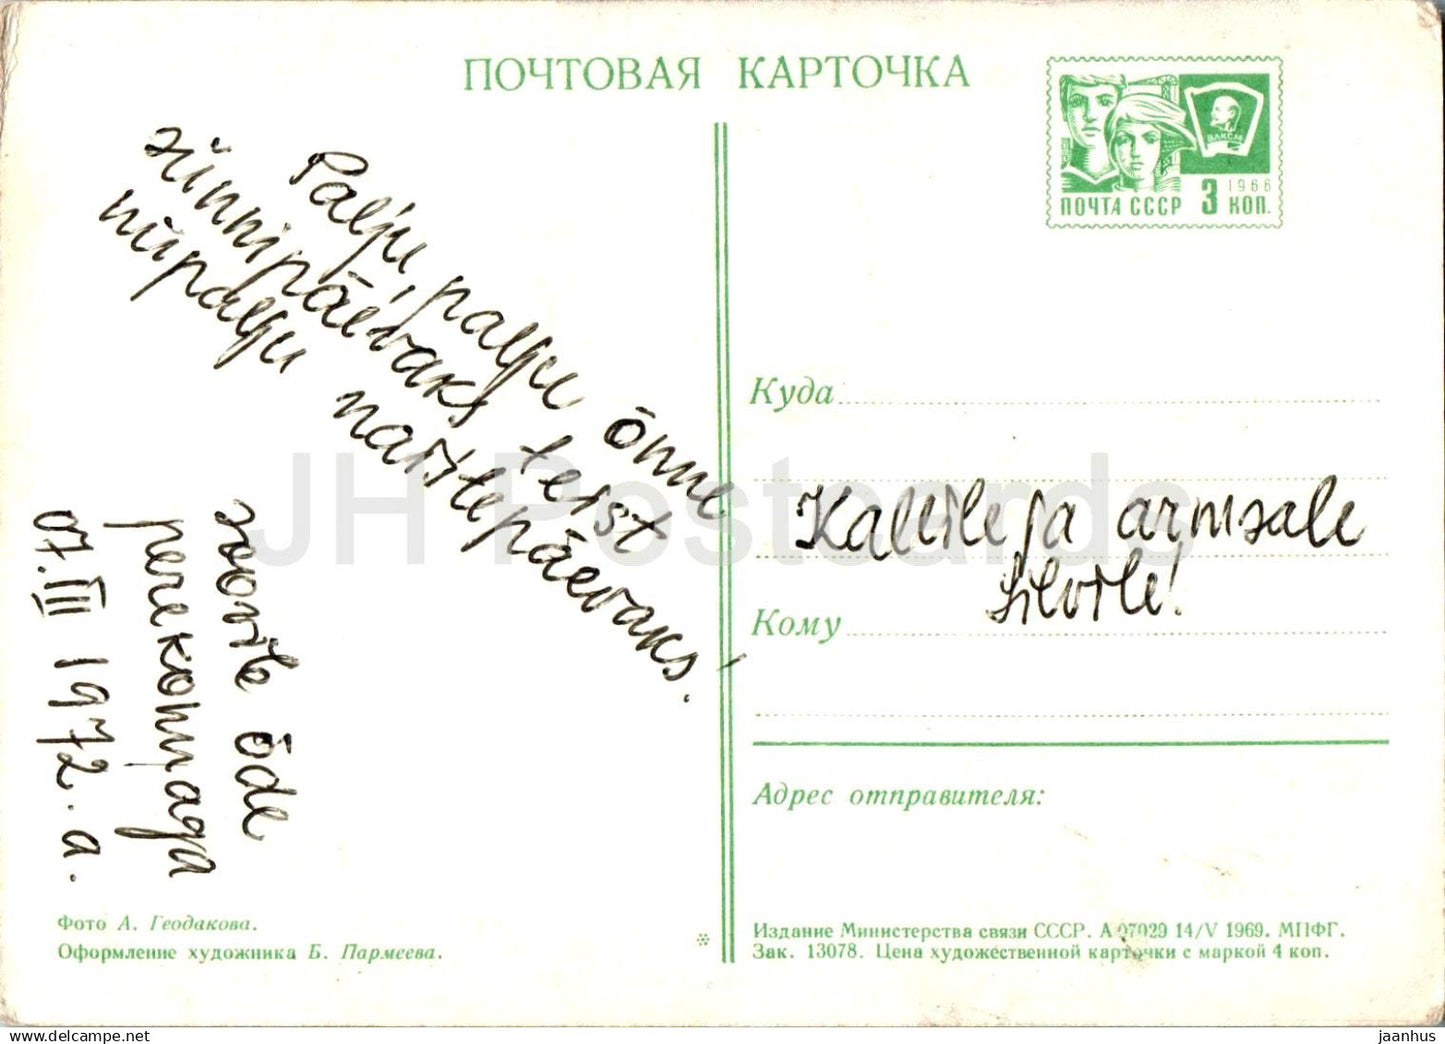 ПОЧТОВАЯ КАРТОЧКА
ВЛКСМ
1966
ПОЧТА СССР 3 КОП.
Palju, palju õnne
sünnipäevaks teist
niipalju naistepäevaks!
soovib õde
perekonnaga
07. III 1972. a.
Куда
Kallile ja armsale
Silvile!
Кому
Адрес отправителя:
Фото А. Геодакова.
Оформление художника Б. Пармеева.
Издание Министерства связи СССР. А 07029 14/V 1969. МПФГ.
Зак. 13078. Цена художественной карточки с маркой 4 коп.
JH Postcards
delcampe.net
jaanhus